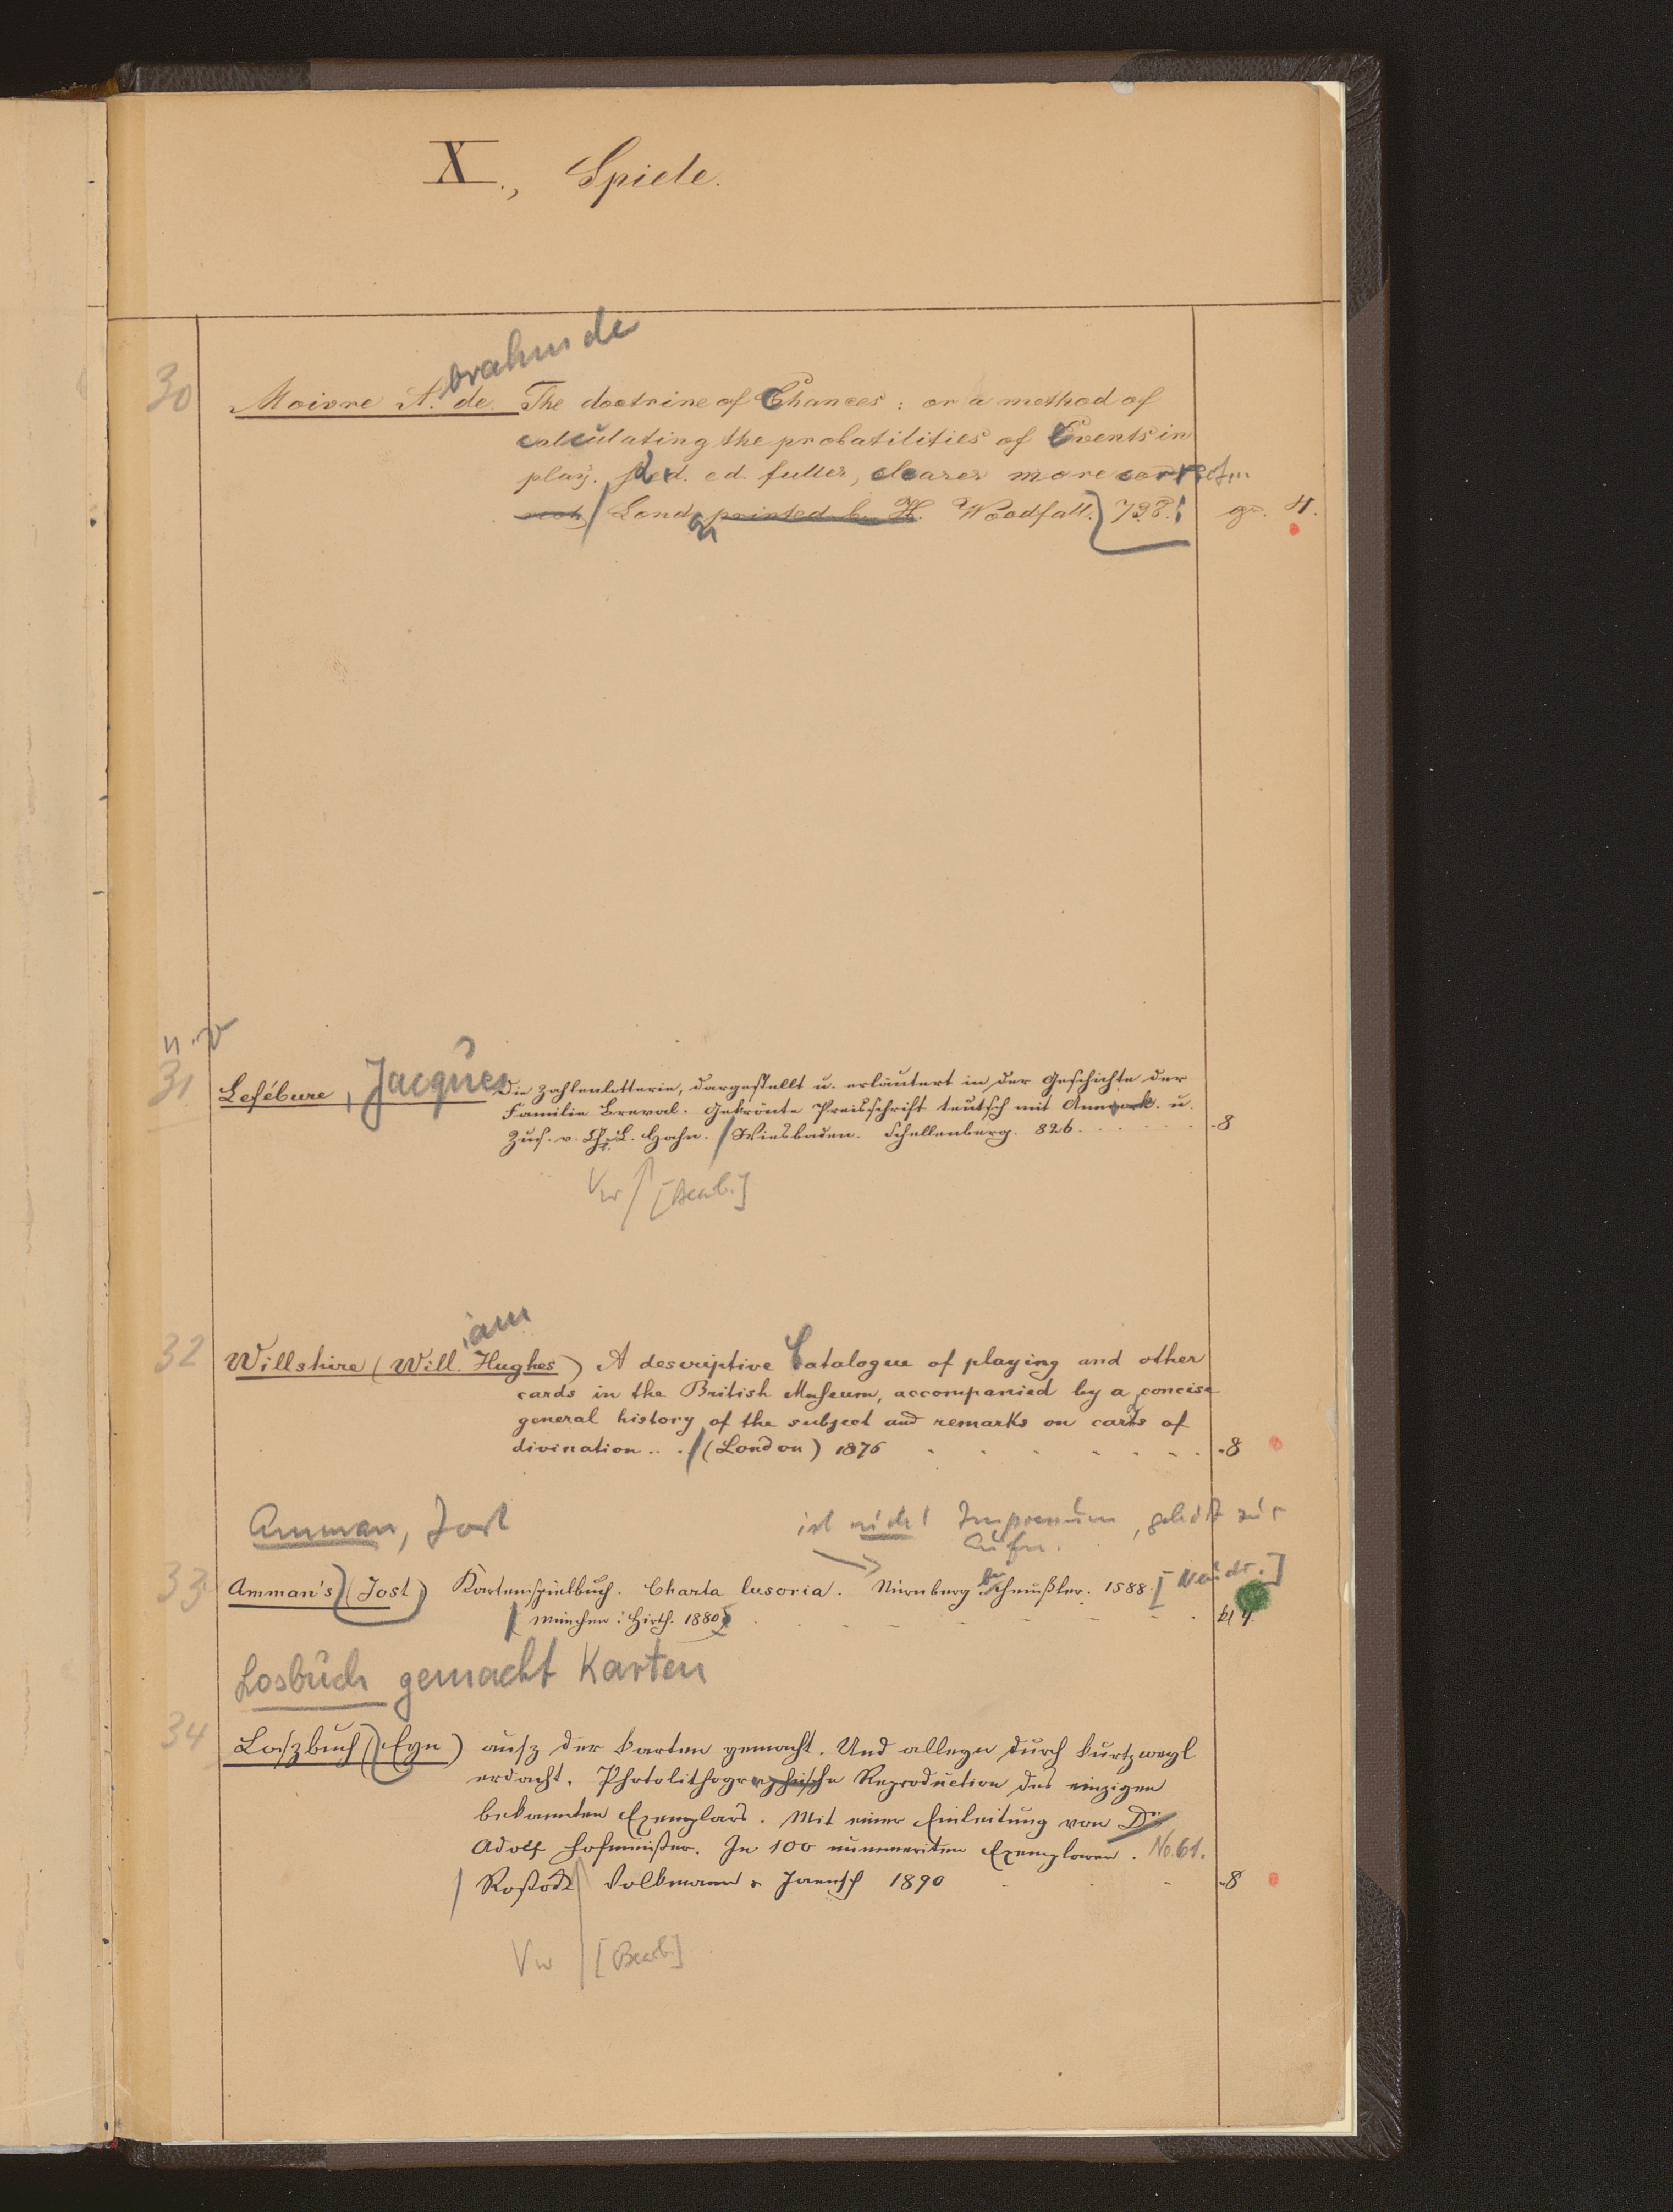 X., Spiele.
braham de
30
Moivre A. de. The doctrine of Chances: or a method of
calculating the probatilities of Events in
play. 2d. ed. fuller, clearer more correct...
Lond. printed b. H. Woodfall. 738. gr. 4.
n. v
31
Lefébure, Jacques Die Zahlenlotterie, dargestellt u. erläutert in der Geschichte der
Familie Breval. Gekrönte Preisschrift teutsch mit Anmerk. u.
Zus. v. Th. L. Hahn. / Wiesbaden. Schellenberg. 826. - 8
Vw / [Bearb.]
iam
32
Willshire (Will. Hughes) A descriptive Catalogue of playing and other
cards in the British Museum, accompanied by a concise
general history of the subject and remarks on cards of
divination .. . / (London) 1876 - 8
Amman, Jost
ist nicht Impressum, gehört zur
Aufn.
33
Amman's (Jost) Kartenspielbuch. Charta lusoria. Nürnberg. Heußler. 1588. [Neudr.]
München: Hirth. 1880 kl 4.
Losbuch gemacht Karten
34
Loszbuch (Eyn) ausz der karten gemacht. Und alleyn durch kurtzweyl
erdacht. Photolithographische Reproduction des einzigen
bekannten Exemplars. Mit einer Einleitung von Dr.
Adolf Hofmeister. In 100 nummeriten Exemplaren. No. 61.
/ Rostock / Volkmann & Jerosch 1890 - 8
Vw / [Bearb.]